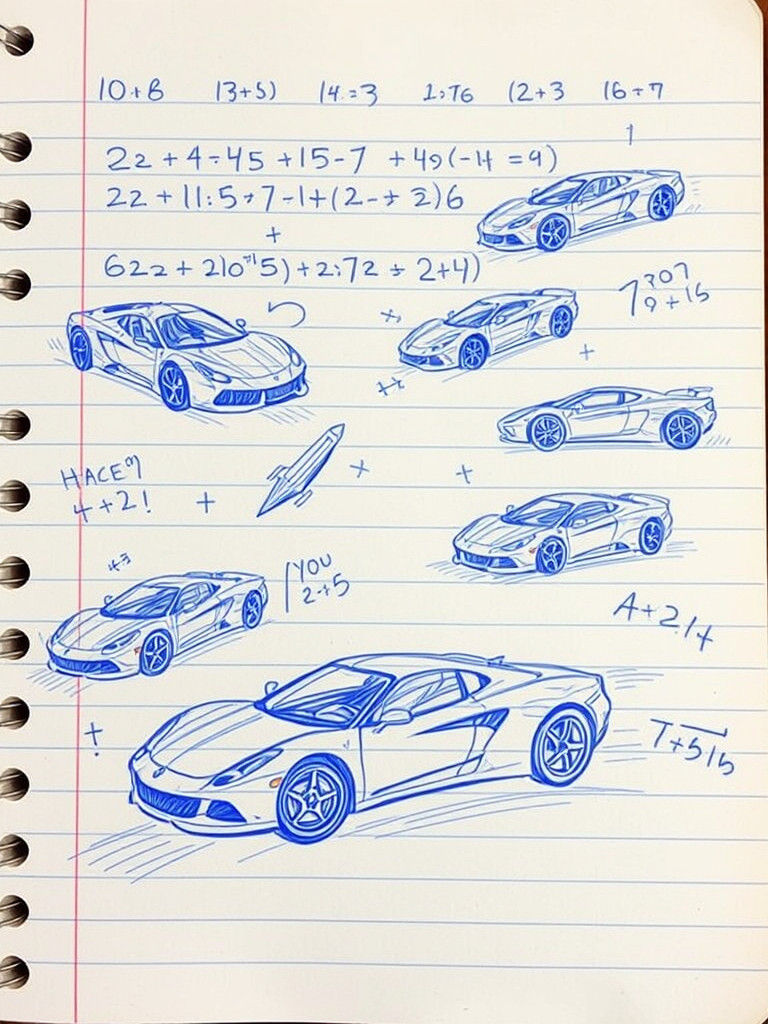 10+8 13+5) 14.=3 1:76 (2+3 16÷7
22+4÷45+15-7 +49(-4=9)
22+11:5+7-1+(2-+2)6
+
622+210 5)+2:72÷2+4)
307
9+15
HACE
4+2!
YOU
2+5
A+2.14
T+515